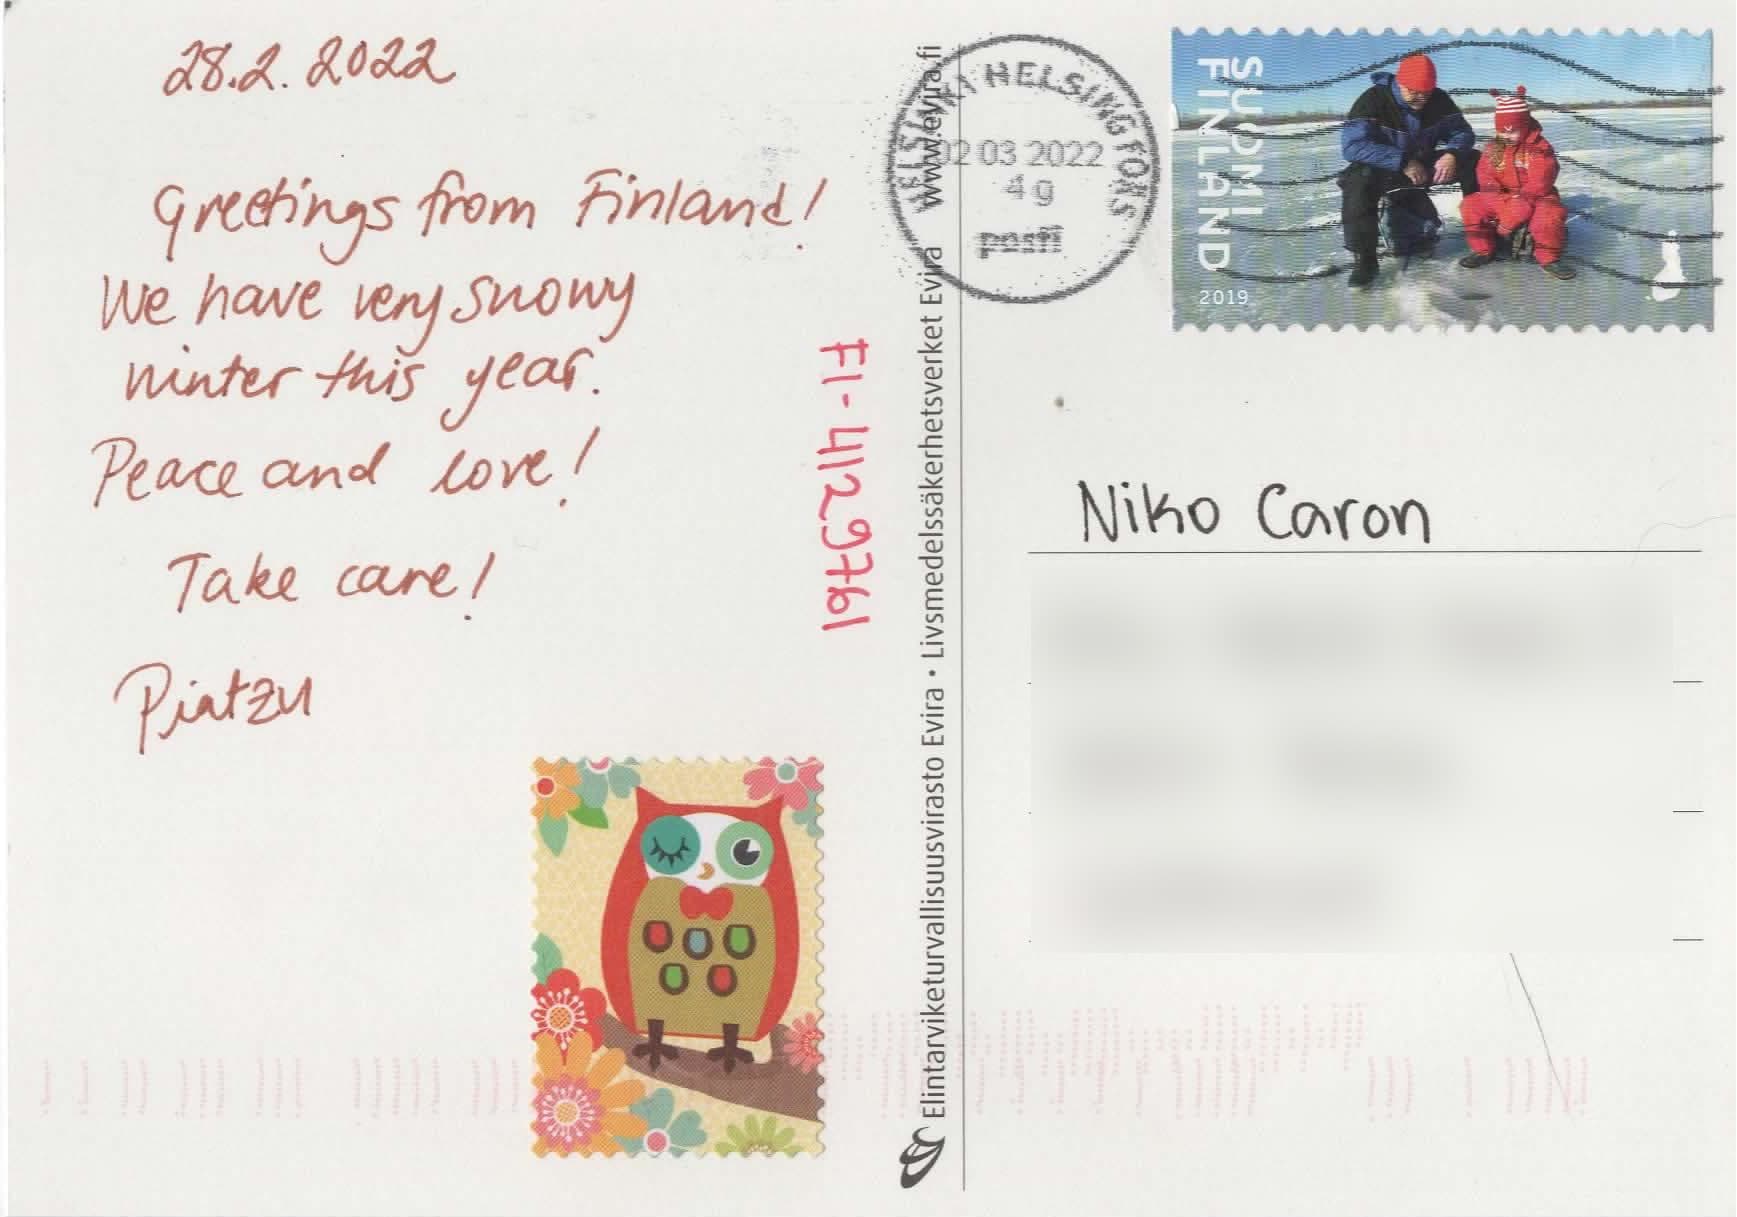 28.2.2022
Greetings from Finland!
We have very snowy
winter this year.
Peace and love!
Take care!
Piatzu
FI-4129761
www.evira.fi
Elintarviketurvallisuusvirasto Evira • Livsmedelssäkerhetsverket Evira
HELSINKI HELSINGFORS
02 03 2022
49
posti
SUOMI
FINLAND
2019
Niko Caron